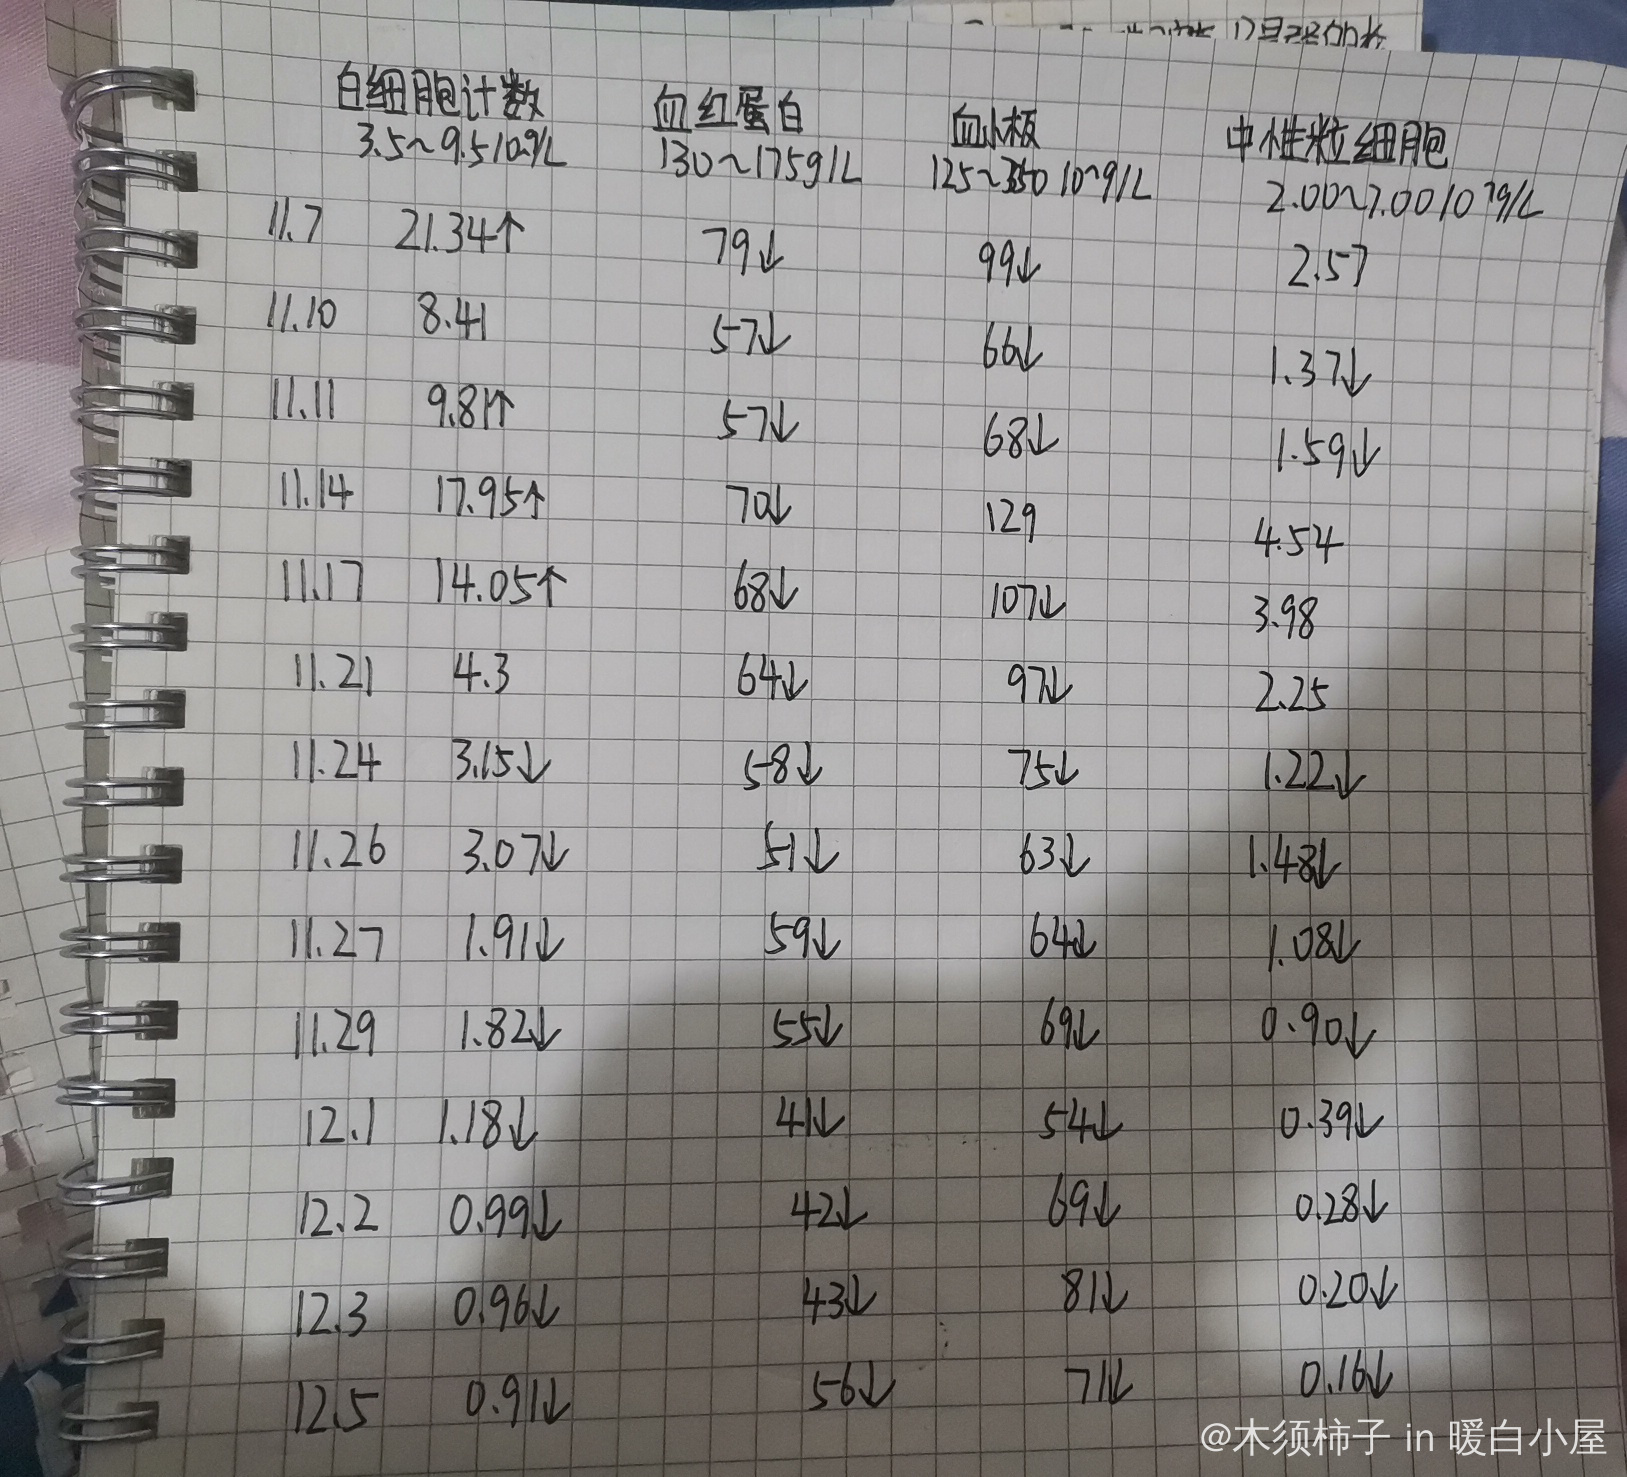 白细胞计数 血红蛋白 血小板 中性粒细胞
3.5~9.5 10^9/L 130~175g/L 125~350 10^9/L 2.00~7.00 10^9/L
11.7 21.34↑ 79↓ 99↓ 2.57
11.10 8.41 57↓ 66↓ 1.37↓
11.11 9.81↑ 57↓ 68↓ 1.59↓
11.14 17.95↑ 70↓ 129 4.54
11.17 14.05↑ 68↓ 107↓ 3.98
11.21 4.3 64↓ 97↓ 2.25
11.24 3.15↓ 58↓ 75↓ 1.22↓
11.26 3.07↓ 51↓ 63↓ 1.48↓
11.27 1.91↓ 59↓ 64↓ 1.08↓
11.29 1.82↓ 55↓ 69↓ 0.90↓
12.1 1.18↓ 41↓ 54↓ 0.39↓
12.2 0.99↓ 42↓ 69↓ 0.28↓
12.3 0.96↓ 43↓ 81↓ 0.20↓
12.5 0.91↓ 56↓ 71↓ 0.16↓
@木须柿子 in 暖白小屋